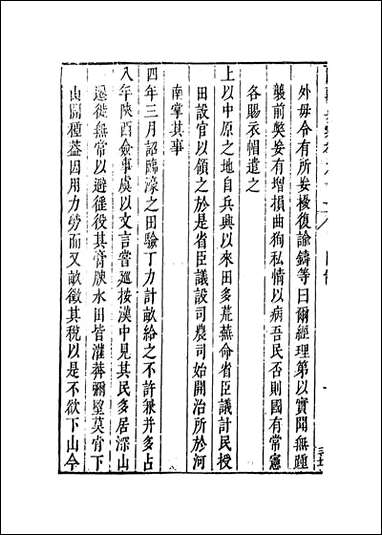 外毋令有所妄擾復諭鑄等曰爾經理第以實聞無踵
襲前弊妄有增損曲狥私情以病吾民否則國有常憲
各賜衣帽遣之
上以中原之地自兵興以來田多荒蕪命省臣議計民授
田設官以領之於是省臣議設司農司始開治所於河
南掌其事
四年三月詔臨濠之田驗丁力計畝給之不許兼并多占
八年陝西僉事虞以文言嘗巡按漢中見其民多居深山
遷徙無常以避徭役其膏腴水田皆灌莽彌望莫肯下
山開種蓋因用力勞而又畝徵其稅以是不欲下山今